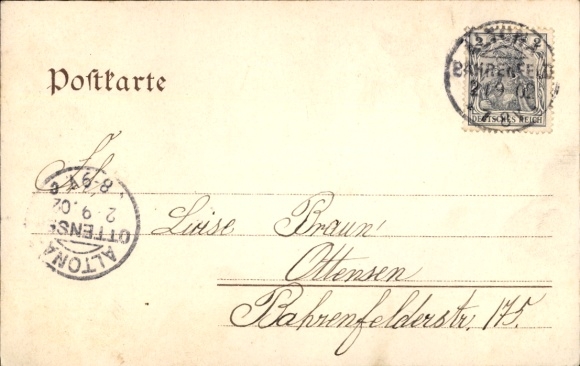 Postkarte
BAHRENFELD
2/9 02
DEUTSCHES REICH
Frl.
Luise Braun
Ottensen
Bahrenfelderstr. 175.
ALTONA
OTTENS
2.9.02
8-9